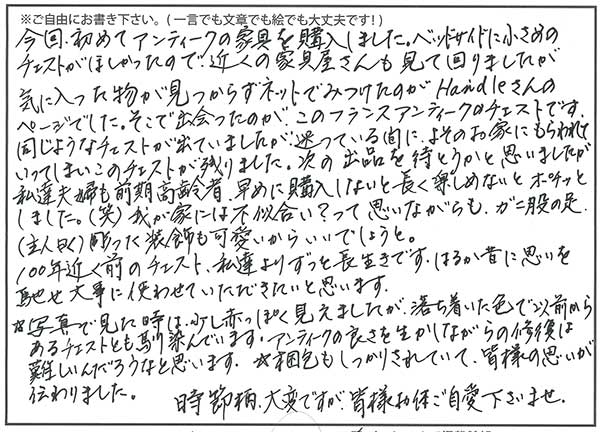 ※ご自由にお書き下さい。(一言でも文章でも絵でも大丈夫です!)
今回、初めてアンティークの家具を購入しました。ベッドサイドに小さめの
チェストがほしかったので、近くの家具屋さんも見て回りましたが
気に入った物が見つからずネットでみつけたのがHandleさんの
ページでした。そこで出会ったのが、このフランスアンティークのチェストです。
同じようなチェストが出ていましたが、迷っている間に、よそのお家にもらわれて
いってしまいこのチェストが残りました。次の出品を待とうかと思いましたが
私達夫婦も前期高齢者、早めに購入しないと長く楽しめないとポチッと
しました。(笑)我が家には不似合い?って思いながらも、ガニ股の足、
(主人曰く)彫った装飾も可愛いからいいでしょうと。
100年近く前のチェスト、私達よりずっと長生きです。はるか昔に思いを
馳せ大事に使わせていただきたいと思います。
※写真で見た時は、少し赤っぽく見えましたが、落ち着いた色で以前から
あるチェストとも馴染んでいます。アンティークの良さを生かしながらの修復は
難しいんだろうなと思います。※梱包もしっかりされていて、皆様の思いが
伝わりました。
時節柄、大変ですが、皆様お体ご自愛下さいませ。